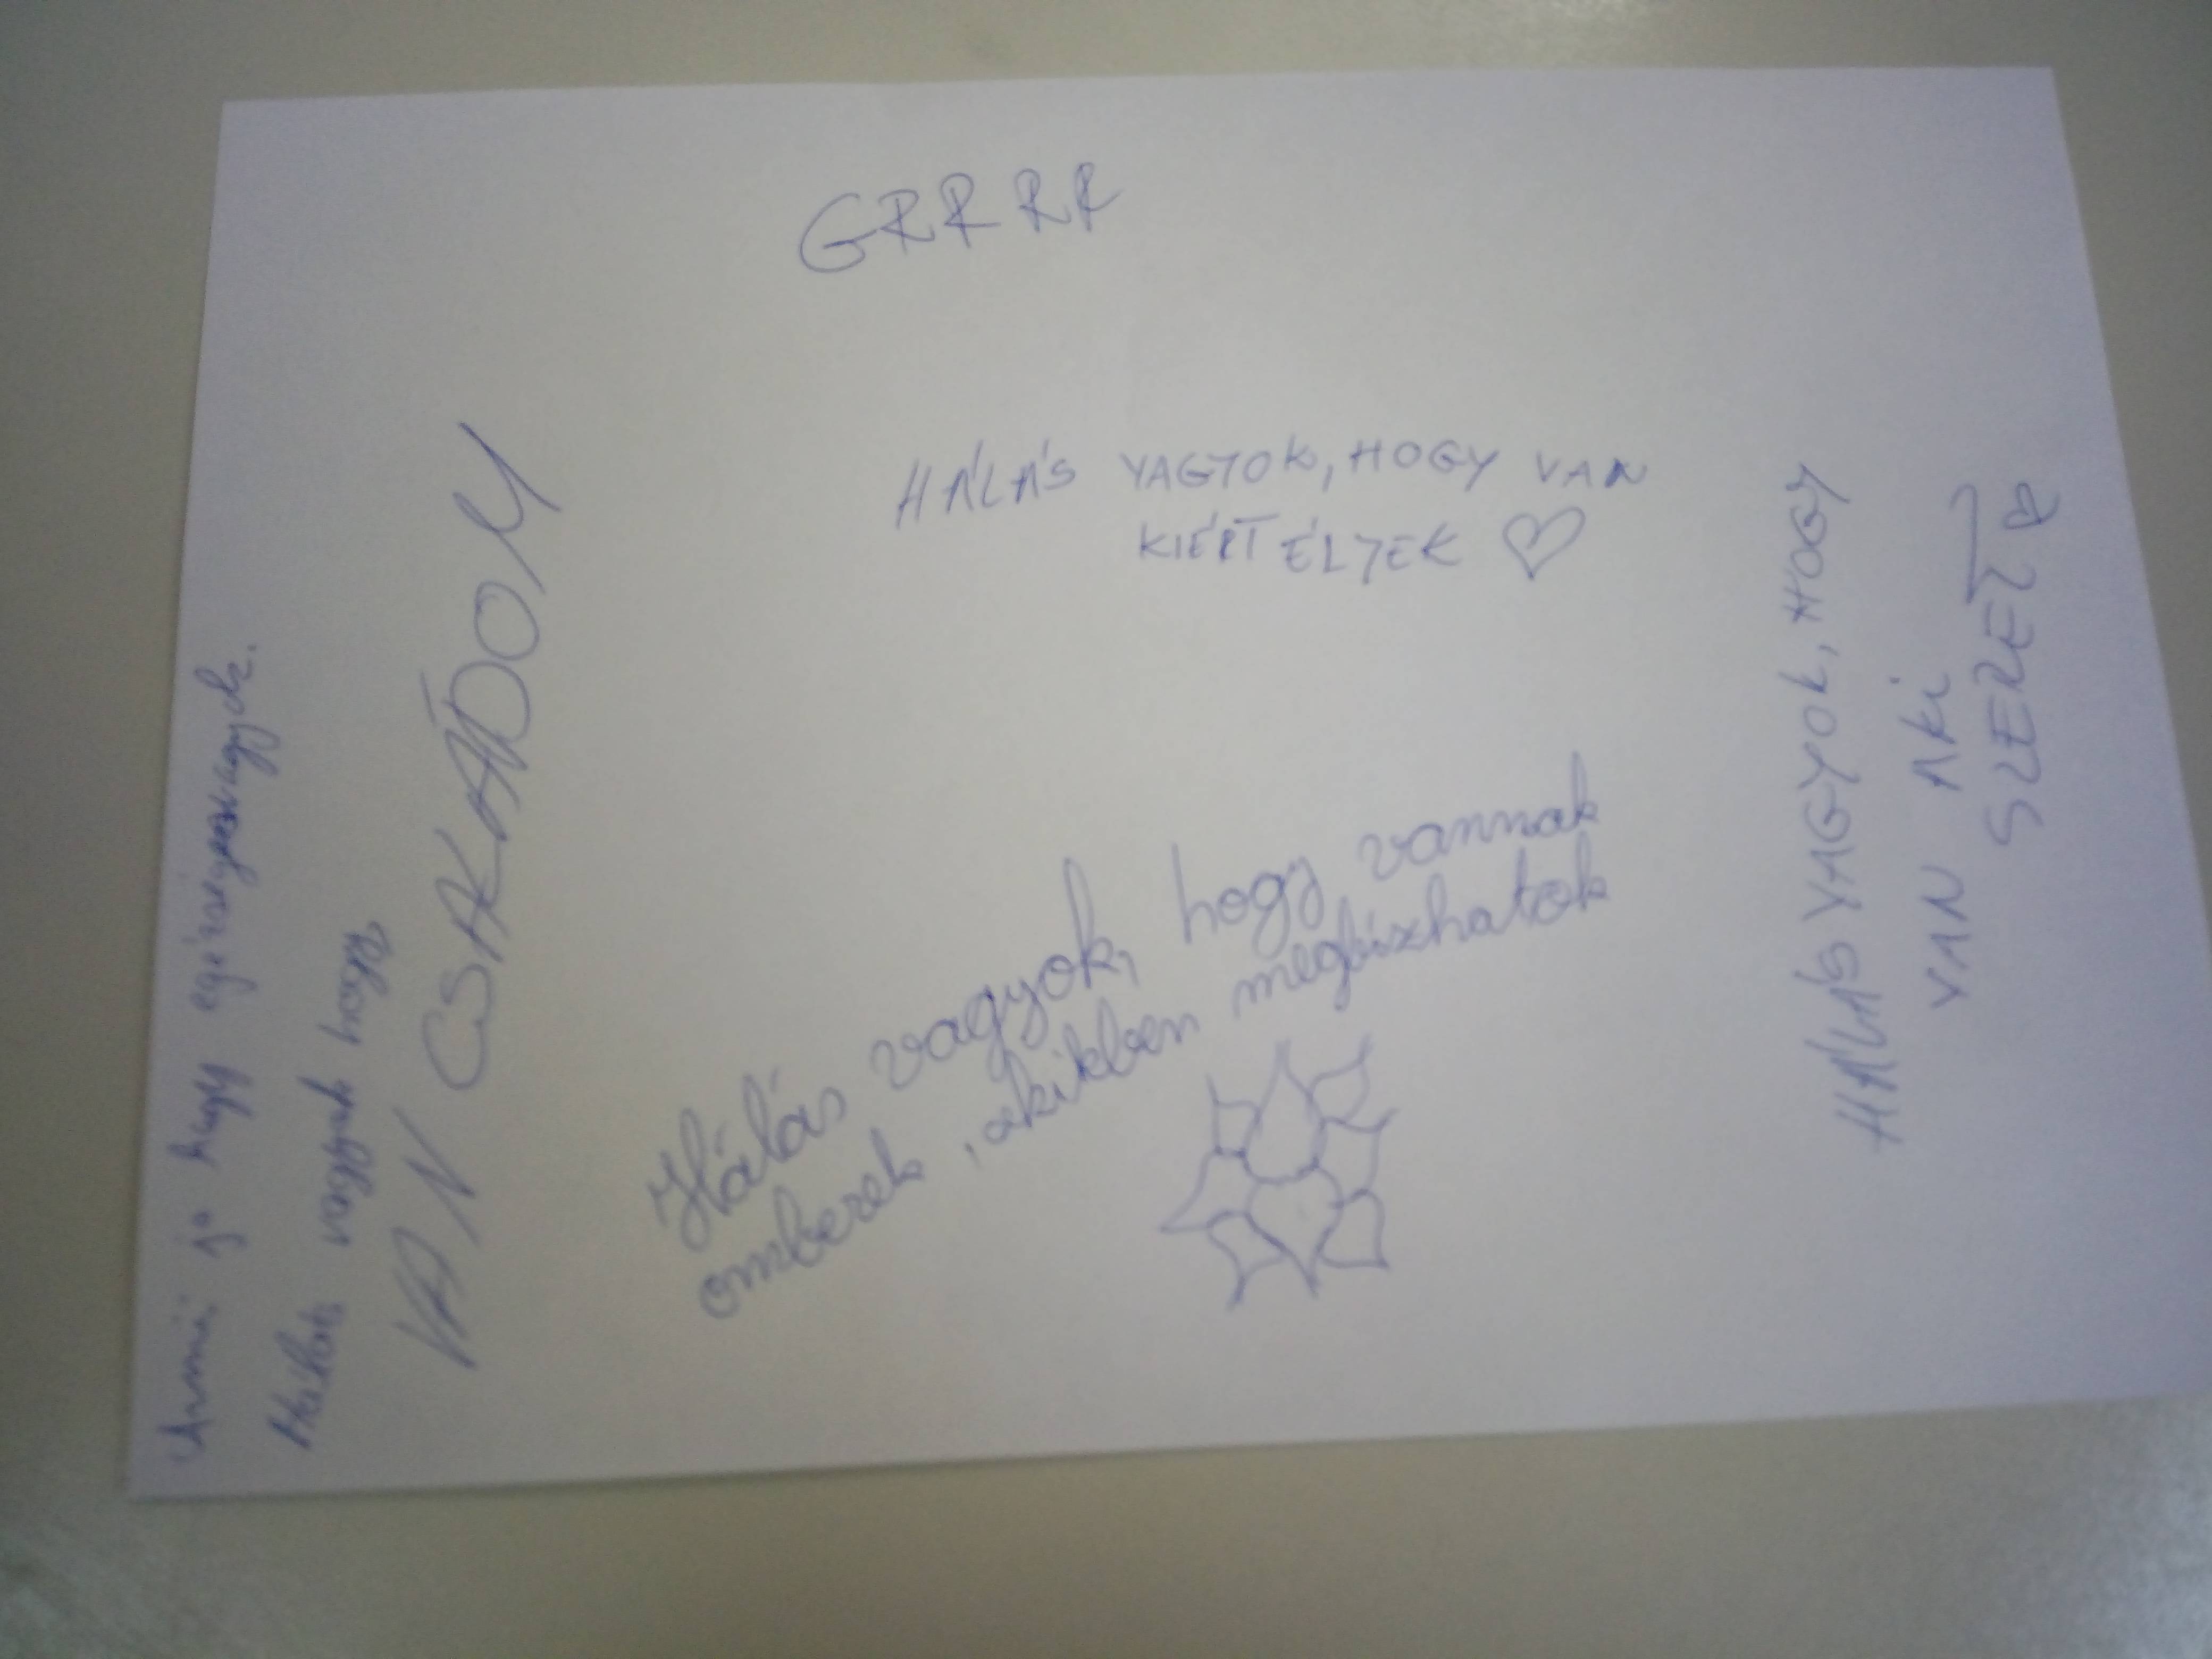 GRRRR
HÁLÁS VAGYOK, HOGY VAN
KIÉRT ÉLJEK
Hálás vagyok, hogy vannak
emberek, akikben megbízhatok
HÁLÁS VAGYOK, HOGY
VAN AKI
SZERET
jó hogy
vagyok hogy
VAN CSAKÁDOM